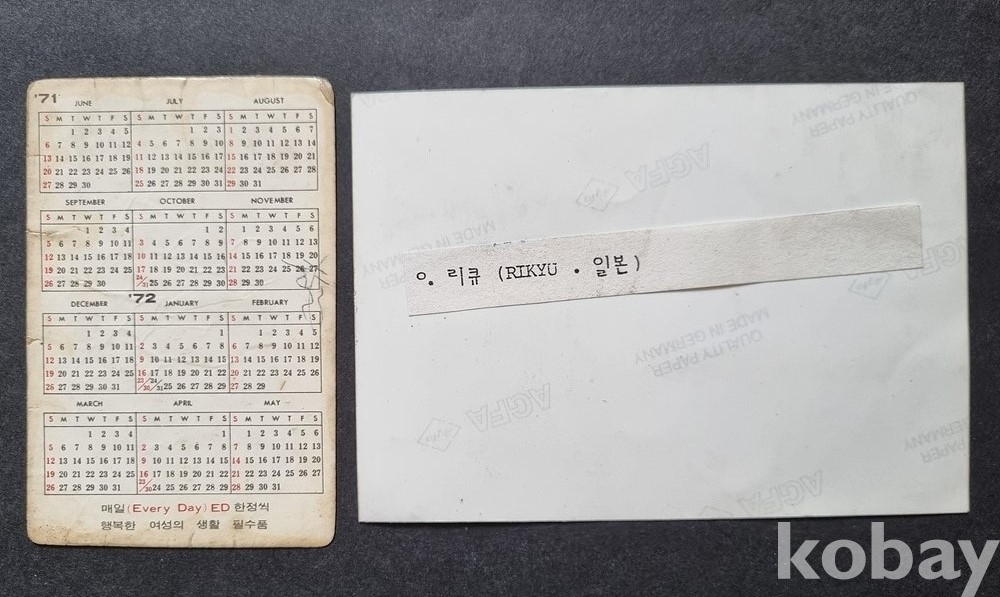 '71
JUNE JULY AUGUST
S M T W T F S S M T W T F S S M T W T F S
1 2 3 4 5 1 2 3 1 2 3 4 5 6 7
6 7 8 9 10 11 12 4 5 6 7 8 9 10 8 9 10 11 12 13 14
13 14 15 16 17 18 19 11 12 13 14 15 16 17 15 16 17 18 19 20 21
20 21 22 23 24 25 26 18 19 20 21 22 23 24 22 23 24 25 26 27 28
27 28 29 30 25 26 27 28 29 30 31 29 30 31
SEPTEMBER OCTOBER NOVEMBER
S M T W T F S S M T W T F S S M T W T F S
1 2 3 4 1 2 1 2 3 4 5 6
5 6 7 8 9 10 11 3 4 5 6 7 8 9 7 8 9 10 11 12 13
12 13 14 15 16 17 18 10 11 12 13 14 15 16 14 15 16 17 18 19 20
19 20 21 22 23 24 25 17 18 19 20 21 22 23 21 22 23 24 25 26 27
26 27 28 29 30 24/31 25 26 27 28 29 30 28 29 30
DECEMBER '72 JANUARY FEBRUARY
S M T W T F S S M T W T F S S M T W T F S
1 2 3 4 1 1 2 3 4 5
5 6 7 8 9 10 11 2 3 4 5 6 7 8 6 7 8 9 10 11 12
12 13 14 15 16 17 18 9 10 11 12 13 14 15 13 14 15 16 17 18 19
19 20 21 22 23 24 25 16 17 18 19 20 21 22 20 21 22 23 24 25 26
26 27 28 29 30 31 23/30 24/31 25 26 27 28 29 27 28 29
MARCH APRIL MAY
S M T W T F S S M T W T F S S M T W T F S
1 2 3 4 1 1 2 3 4 5 6
5 6 7 8 9 10 11 2 3 4 5 6 7 8 7 8 9 10 11 12 13
12 13 14 15 16 17 18 9 10 11 12 13 14 15 14 15 16 17 18 19 20
19 20 21 22 23 24 25 16 17 18 19 20 21 22 21 22 23 24 25 26 27
26 27 28 29 30 31 23/30 24 25 26 27 28 29 28 29 30 31
매일 (Every Day) ED 한정씩
행복한 여성의 생활 필수품
ㅇ. 리큐 (RIKYU · 일본)
QUALITY PAPER
MADE IN GERMANY
AGFA
MADE IN GERMANY
QUALITY PAPER
MADE IN GERMANY
AGFA
AGFA
kobay